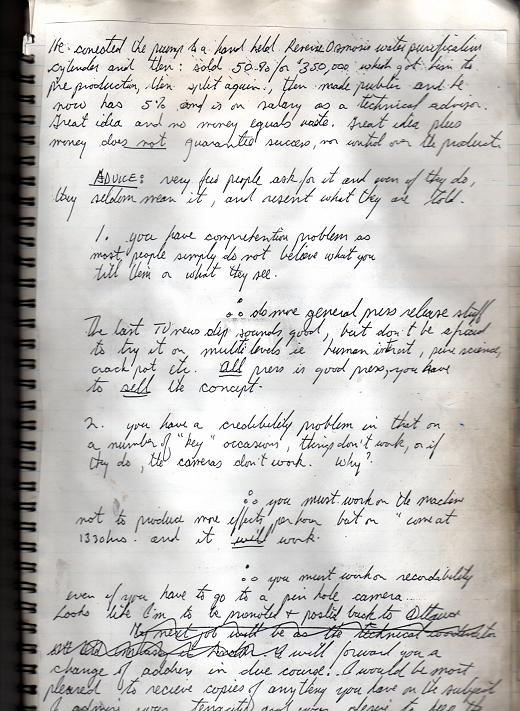 He conected the pump to a hand held Reverse Osmosis water purification
cylinder and then: sold 50% for $350,000 which got him to
pre production, then split again, then made public and he
now has 5% and is on salary as a technical advisor.
Great idea and no money equals waste. Great idea plus
money does not guarantee success, nor control over the product.
ADVICE: very few people ask for it and even if they do,
they seldom mean it, and resent what they are told.
1. you have comprehention problem as
most people simply do not believe what you
tell them or what they see.
∴ do more general press release stuff
The last TV news clip sounds good, but don't be afraid
to try it on multi levels ie human interest, pure science,
crack pot etc. All press is good press, you have
to sell the concept.
2. you have a credibility problem in that on
a number of "key" occasions, things don't work, or if
they do, the cameras don't work. Why?
∴ you must work on the machine
not to produce more effects per hour but on "come at
1330hrs. and it will work.
∴ you must work on recordability
even if you have to go to a pin hole camera...
Looks like I'm to be promoted & posted back to Ottawa
My next job will be as the technical
I will forward you a
change of address in due course! I would be most
pleased to recieve copies of anything you have on the subject
I admire your tenacity and